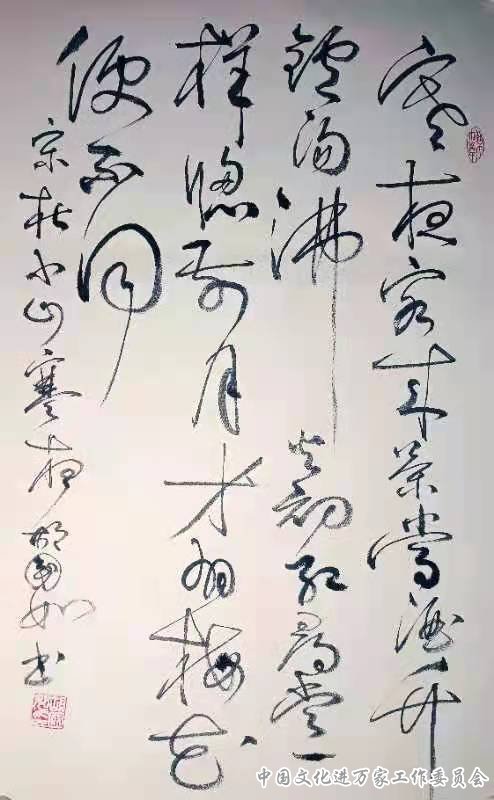 寒夜客来茶當酒竹
鑪湯沸火初紅尋常一
樣窻前月才有梅花
便不同
宋杜小山寒夜 胡如书
中国文化进万家工作委员会